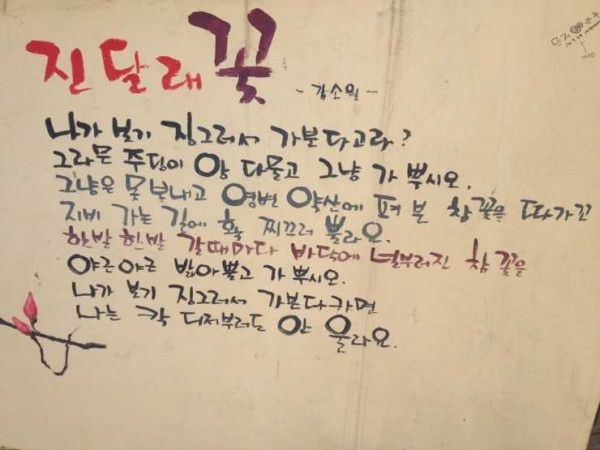 진달래꽃
- 김소월 -
나가 보기 징그러서 가분다고라?
그라믄 주딩이 앙 다물고 그냥 가 뿌시오.
그냥은 못 보내고 영변 약산에 펴 분 참꽃을 따가꼬
지비 가는 길에 확 찌끄러 뿔라요.
한발 한발 갈때마다 바닥에 널부러진 참꽃을
야근야근 밟아뿔고 가 뿌시오.
나가 보기 징그러서 가분다카면
나는 칵 디져부러도 안 울라요.